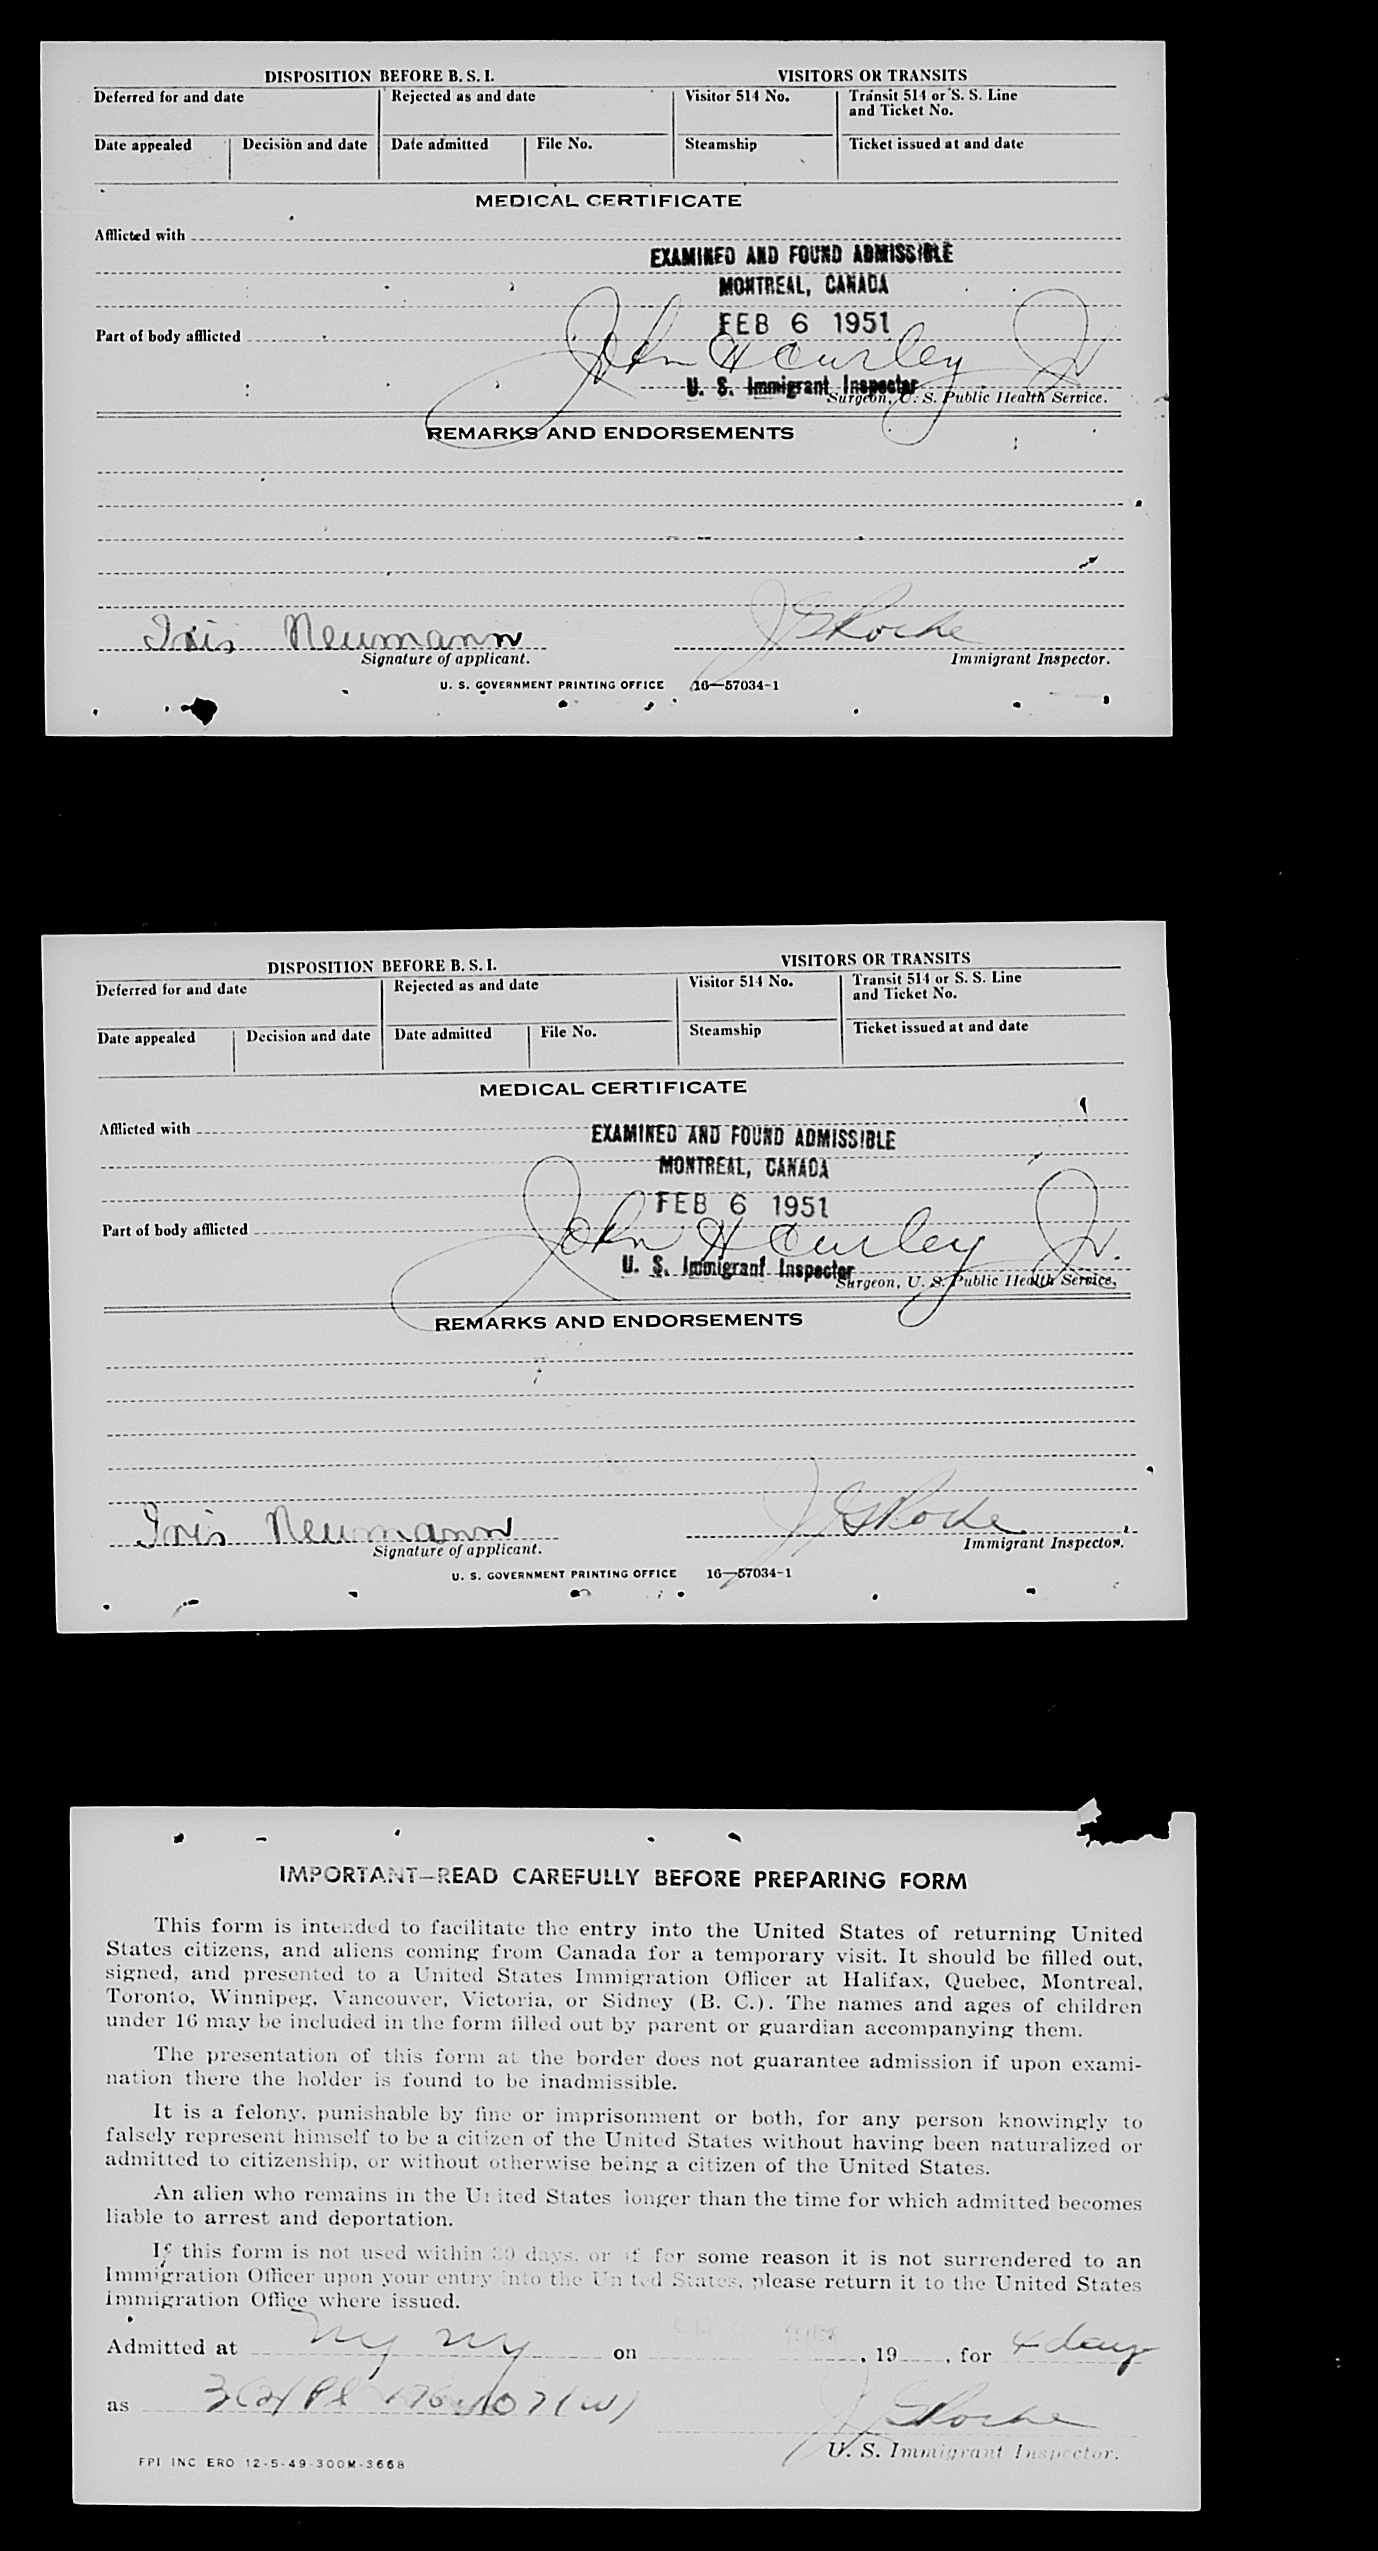 DISPOSITION BEFORE B. S. I.
VISITORS OR TRANSITS
Deferred for and date
Rejected as and date
Visitor 514 No.
Transit 514 or S. S. Line
and Ticket No.
Date appealed
Decision and date
Date admitted
File No.
Steamship
Ticket issued at and date
MEDICAL CERTIFICATE
Afflicted with
EXAMINED AND FOUND ADMISSIBLE
MONTREAL, CANADA
FEB 6 1951
Part of body afflicted
John H Curley Jr
U. S. Immigrant Inspector
Surgeon, U. S. Public Health Service.
REMARKS AND ENDORSEMENTS
Iris Neumann
J G Roche
Signature of applicant.
Immigrant Inspector.
U. S. GOVERNMENT PRINTING OFFICE 16—57034-1
DISPOSITION BEFORE B. S. I.
VISITORS OR TRANSITS
Deferred for and date
Rejected as and date
Visitor 514 No.
Transit 514 or S. S. Line
and Ticket No.
Date appealed
Decision and date
Date admitted
File No.
Steamship
Ticket issued at and date
MEDICAL CERTIFICATE
Afflicted with
EXAMINED AND FOUND ADMISSIBLE
MONTREAL, CANADA
FEB 6 1951
Part of body afflicted
John H Curley Jr.
U. S. Immigrant Inspector
Surgeon, U. S. Public Health Service.
REMARKS AND ENDORSEMENTS
Iris Neumann
J G Roche
Signature of applicant.
Immigrant Inspector.
U. S. GOVERNMENT PRINTING OFFICE 16—57034-1
IMPORTANT—READ CAREFULLY BEFORE PREPARING FORM
This form is intended to facilitate the entry into the United States of returning United
States citizens, and aliens coming from Canada for a temporary visit. It should be filled out,
signed, and presented to a United States Immigration Officer at Halifax, Quebec, Montreal,
Toronto, Winnipeg, Vancouver, Victoria, or Sidney (B. C.). The names and ages of children
under 16 may be included in the form filled out by parent or guardian accompanying them.
The presentation of this form at the border does not guarantee admission if upon exami-
nation there the holder is found to be inadmissible.
It is a felony, punishable by fine or imprisonment or both, for any person knowingly to
falsely represent himself to be a citizen of the United States without having been naturalized or
admitted to citizenship, or without otherwise being a citizen of the United States.
An alien who remains in the United States longer than the time for which admitted becomes
liable to arrest and deportation.
If this form is not used within 30 days, or if for some reason it is not surrendered to an
Immigration Officer upon your entry into the United States, please return it to the United States
Immigration Office where issued.
Admitted at NY NY on , 19 , for 4 days
as 3(2)
J G Roche
U. S. Immigrant Inspector.
FPI INC ERO 12-5-49-300M-3668